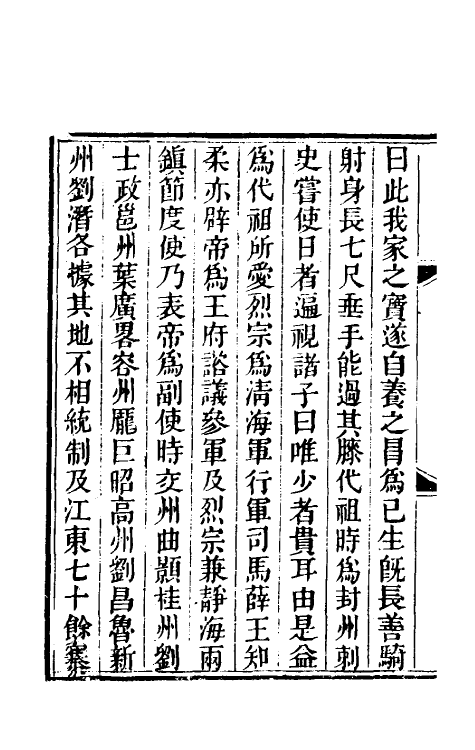 曰此我家之寶遂自養之冒爲已生旣長善騎
射身長七尺垂手能過其膝代祖時爲封州刺
史嘗使日者遍視諸子曰唯少者貴耳由是益
爲代祖所愛烈宗爲清海軍行軍司馬薛王知
柔亦辟帝爲王府諮議參軍及烈宗兼靜海兩
鎮節度使乃表帝爲副使時交州曲顥桂州劉
士政邕州葉廣畧容州龎巨昭高州劉昌魯新
州劉潛各據其地不相統制及江東七十餘寨